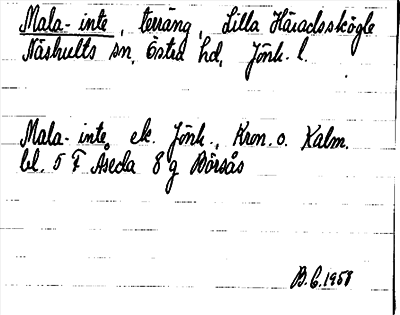 Mala-inte, terräng, Lilla Häradsskögle
Näshults sn, Östra hd, Jönk. l.
Mala-inte ek. Jönk., Kron. o. Kalm.
bl. 5 F Åseda 8 g Börsås
B.G. 1958